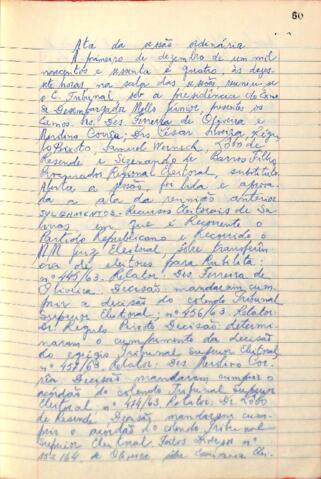 60
Ata da sessão ordinária
A primeiro de dezembro de um mil
novecentos e sessenta e quatro, às
horas na sala das sessões, reuniu-se
o C. Tribunal, sob a presidência do Exmo
Sr. Desembargador Mello Júnior, presentes os
Exmos. Srs. Des. Ferreira de Oliveira e
Merolino Corrêa; Drs. César Silveira, Régu
lo Peixoto, Samuel Werneck, Lobo de
Resende e Sizenando de Barros Filho
Procurador Regional Eleitoral, substituto
Aberta a sessão, foi lida e aprova
da a ata da reunião anterior
JULGAMENTOS - Recursos Eleitorais de Sa
linas em que é Recorrente o
Partido Republicano e Recorrido o
MM Juiz Eleitoral, sobre transferên
cia de eleitores para Rubelita:
nº 445/63. Relator: Des Ferreira de
Oliveira. Decisão: mandaram cum
prir a decisão do colendo Tribunal
Superior Eleitoral; nº 456/63. Relator:
Dr Régulo Peixoto Decisão: determi
naram o cumprimento da decisão
do egrégio Tribunal Superior Eleitoral
nº 457/63. Relator: Des. Merolino Cor
rêa Decisão mandaram cumprir o
acórdão do colendo Tribunal Superior
Eleitoral nº 474/63 Relator: Dr Lobo
de Resende. Decisão: mandaram cum
prir o acórdão do colendo Tribunal
Superior Eleitoral Feitos Diversos nº
/64. de sobre